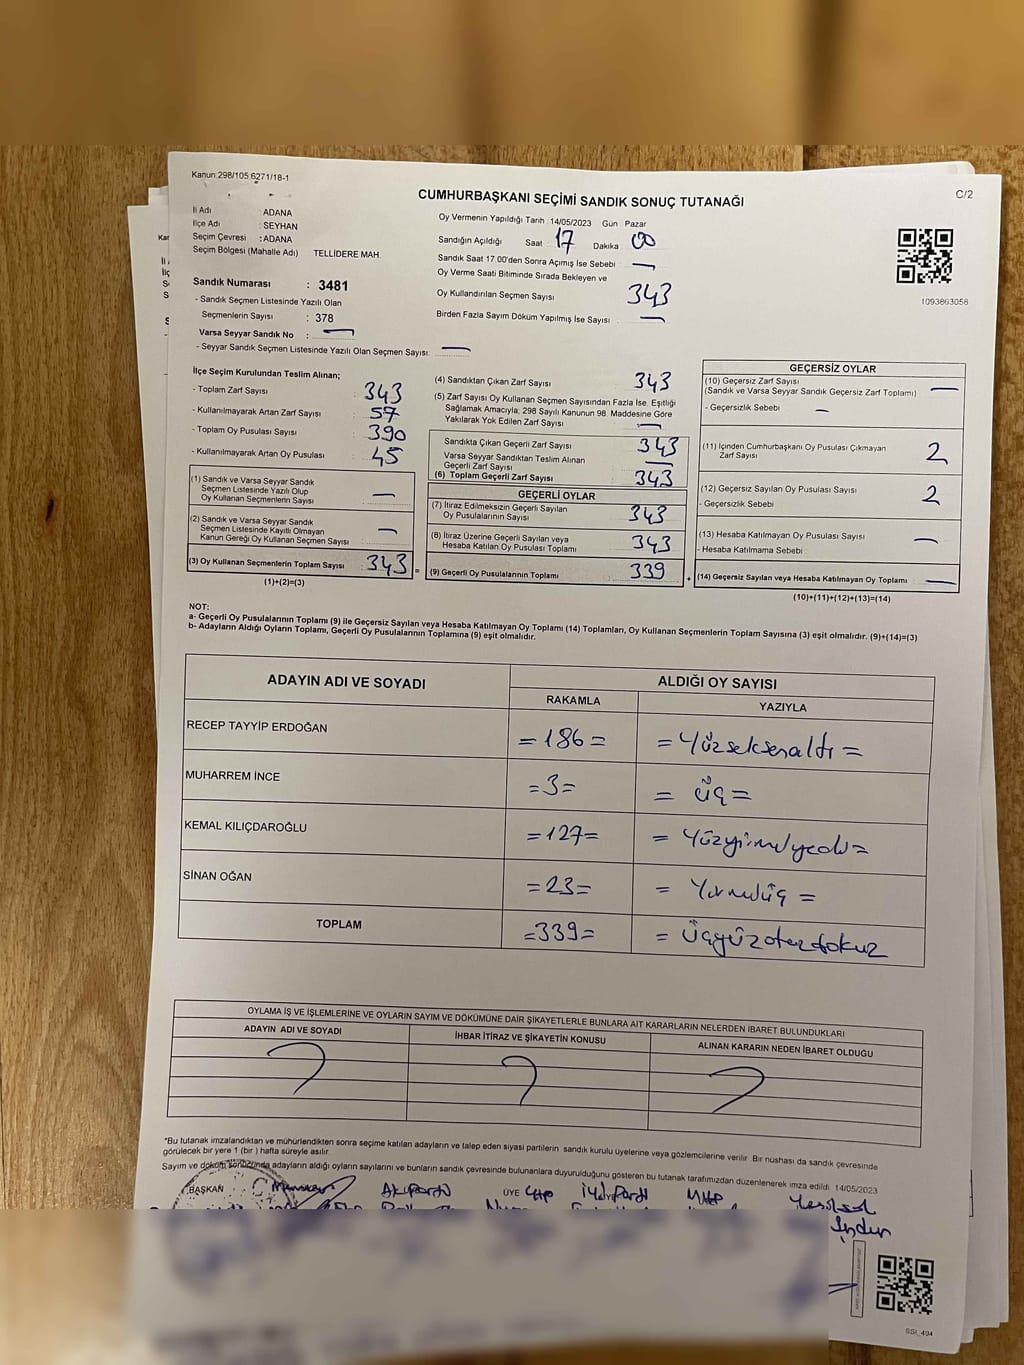 Kanun:298/105.6271/18-1
CUMHURBAŞKANI SEÇİMİ SANDIK SONUÇ TUTANAĞI
C/2
İl Adı ADANA
İlçe Adı : SEYHAN
Seçim Çevresi : ADANA
Seçim Bölgesi (Mahalle Adı) TELLİDERE MAH.
Oy Vermenin Yapıldığı Tarih :14/05/2023 Gün Pazar
Sandığın Açıldığı Saat 17 Dakika 00
Sandık Saat 17.00'den Sonra Açılmış İse Sebebi —
Oy Verme Saati Bitiminde Sırada Bekleyen ve
Oy Kullandırılan Seçmen Sayısı 343
Birden Fazla Sayım Döküm Yapılmış İse Sayısı —
1093863058
Sandık Numarası : 3481
- Sandık Seçmen Listesinde Yazılı Olan
Seçmenlerin Sayısı : 378
Varsa Seyyar Sandık No : —
- Seyyar Sandık Seçmen Listesinde Yazılı Olan Seçmen Sayısı: —
İlçe Seçim Kurulundan Teslim Alınan;
- Toplam Zarf Sayısı 343
- Kullanılmayarak Artan Zarf Sayısı 57
- Toplam Oy Pusulası Sayısı 390
- Kullanılmayarak Artan Oy Pusulası 45
(1) Sandık ve Varsa Seyyar Sandık
Seçmen Listesinde Yazılı Olup
Oy Kullanan Seçmenlerin Sayısı —
(2) Sandık ve Varsa Seyyar Sandık
Seçmen Listesinde Kayıtlı Olmayan
Kanun Gereği Oy Kullanan Seçmen Sayısı —
(3) Oy Kullanan Seçmenlerin Toplam Sayısı 343 =
(1)+(2)=(3)
(4) Sandıktan Çıkan Zarf Sayısı 343
(5) Zarf Sayısı Oy Kullanan Seçmen Sayısından Fazla İse, Eşitliği
Sağlamak Amacıyla; 298 Sayılı Kanunun 98. Maddesine Göre
Yakılarak Yok Edilen Zarf Sayısı —
Sandıkta Çıkan Geçerli Zarf Sayısı 343
Varsa Seyyar Sandıktan Teslim Alınan
Geçerli Zarf Sayısı —
(6) Toplam Geçerli Zarf Sayısı 343
GEÇERLİ OYLAR
(7) İtiraz Edilmeksizin Geçerli Sayılan
Oy Pusulalarının Sayısı 343
(8) İtiraz Üzerine Geçerli Sayılan veya
Hesaba Katılan Oy Pusulası Toplamı 343
(9) Geçerli Oy Pusulalarının Toplamı 339 +
GEÇERSİZ OYLAR
(10) Geçersiz Zarf Sayısı
(Sandık ve Varsa Seyyar Sandık Geçersiz Zarf Toplamı) —
- Geçersizlik Sebebi —
(11) İçinden Cumhurbaşkanı Oy Pusulası Çıkmayan
Zarf Sayısı 2
(12) Geçersiz Sayılan Oy Pusulası Sayısı 2
- Geçersizlik Sebebi
(13) Hesaba Katılmayan Oy Pusulası Sayısı —
- Hesaba Katılmama Sebebi
(14) Geçersiz Sayılan veya Hesaba Katılmayan Oy Toplamı —
(10)+(11)+(12)+(13)=(14)
NOT:
a- Geçerli Oy Pusulalarının Toplamı (9) ile Geçersiz Sayılan veya Hesaba Katılmayan Oy Toplamı (14) Toplamları, Oy Kullanan Seçmenlerin Toplam Sayısına (3) eşit olmalıdır. (9)+(14)=(3)
b- Adayların Aldığı Oyların Toplamı, Geçerli Oy Pusulalarının Toplamına (9) eşit olmalıdır.
ADAYIN ADI VE SOYADI ALDIĞI OY SAYISI
RAKAMLA YAZIYLA
RECEP TAYYİP ERDOĞAN =186= =Yüzseksenaltı=
MUHARREM İNCE =3= =üç=
KEMAL KILIÇDAROĞLU =127= =Yüzyirmiyedi=
SİNAN OĞAN =23= =Yirmiüç=
TOPLAM =339= =Üçyüzotuzdokuz
OYLAMA İŞ VE İŞLEMLERİNE VE OYLARIN SAYIM VE DÖKÜMÜNE DAİR ŞİKAYETLERLE BUNLARA AİT KARARLARIN NELERDEN İBARET BULUNDUKLARI
ADAYIN ADI VE SOYADI İHBAR İTİRAZ VE ŞİKAYETİN KONUSU ALINAN KARARIN NEDEN İBARET OLDUĞU
*Bu tutanak imzalandıktan ve mühürlendikten sonra seçime katılan adayların ve talep eden siyasi partilerin sandık kurulu üyelerine veya gözlemcilerine verilir. Bir nüshası da sandık çevresinde
görülecek bir yere 1 (bir) hafta süreyle asılır.
Sayım ve döküm sonucunda adayların aldığı oyların sayılarını ve bunların sandık çevresinde bulunanlara duyurulduğunu gösteren bu tutanak tarafımızdan düzenlenerek imza edildi. 14/05/2023
BAŞKAN Ak parti ÜYE CHP İYİ Parti MHP Yeşil sol
SSI_494